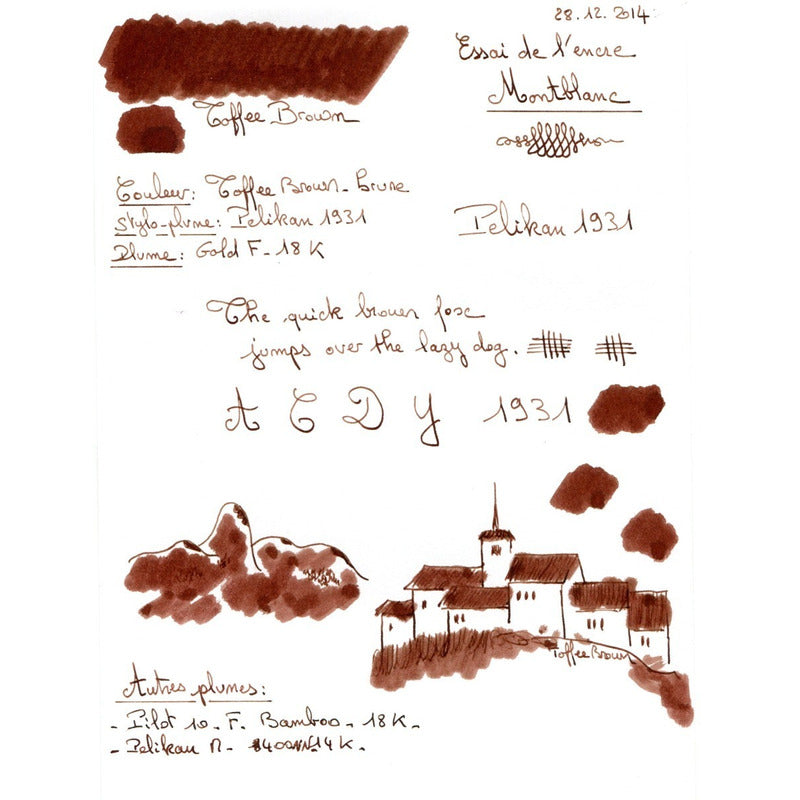 28.12.2014
Essai de l'encre
Montblanc
Toffee Brown
Couleur: Toffee Brown - brune
Stylo-plume: Pelikan 1931
Plume: Gold F - 18 K
Pelikan 1931
The quick brown fox
jumps over the lazy dog.
A C D Y 1931
Toffee Brown
Autres plumes:
- Pilot 10 - F. Bamboo - 18K -
- Pelikan M - 400NN 14K -